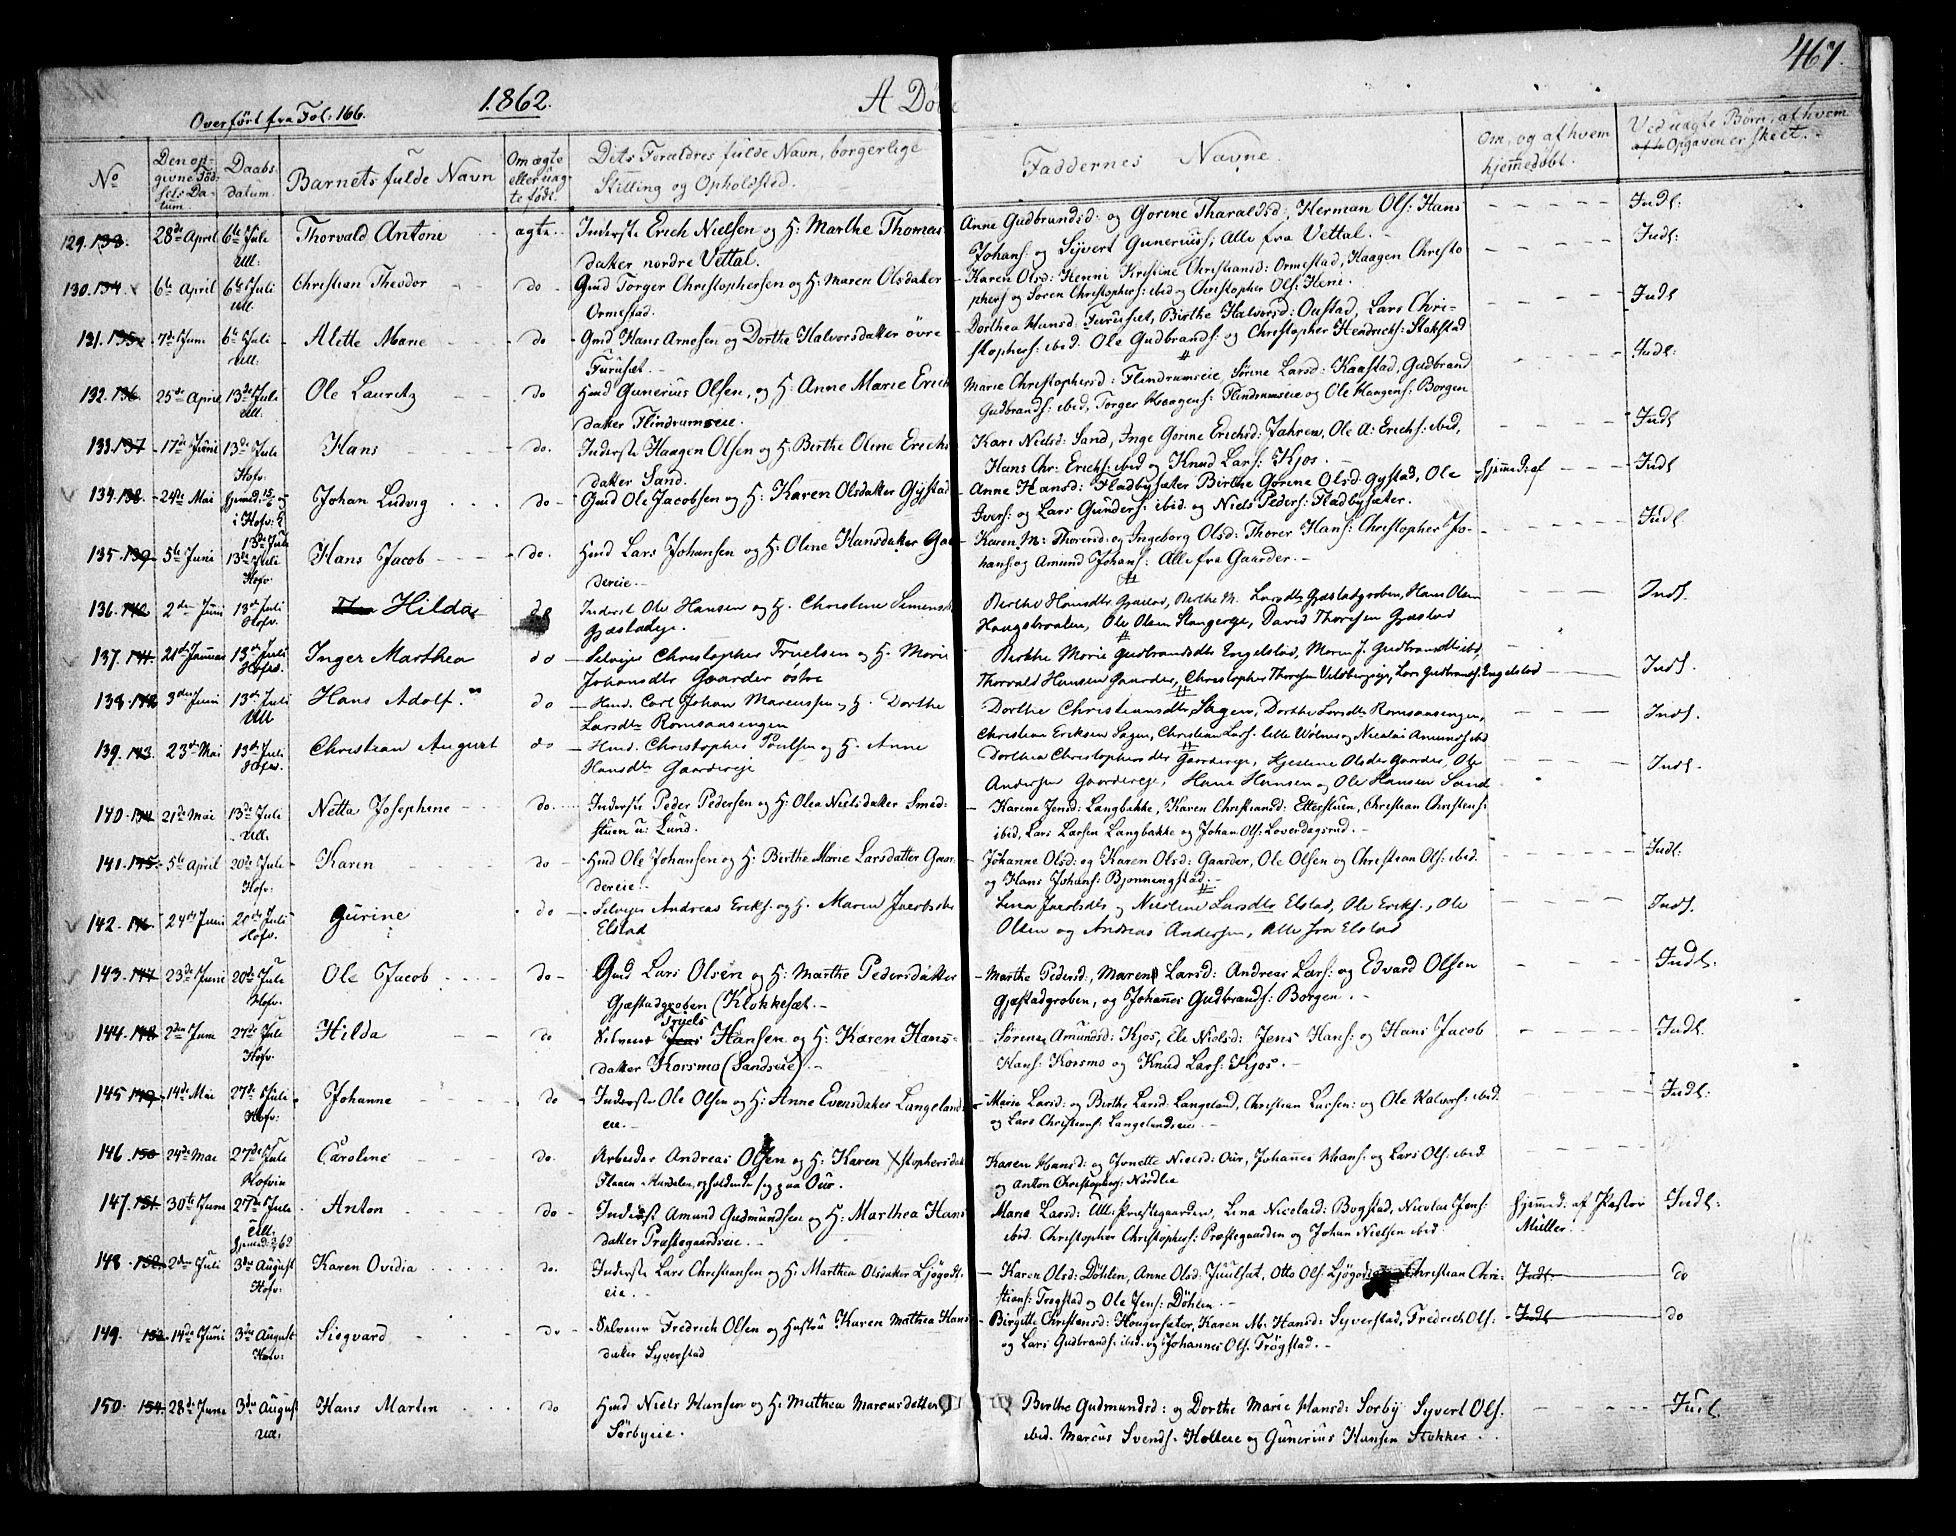 467.
Overført fra Fol: 166.
1862.
A Døbte
No
Den opgivne Fødsels Datum
Daabs datum.
Barnets fulde Navn
Om ægte eller uægte født.
Dets Forældres fulde Navn, borgerlige Stilling og Opholdsted.
Faddernes Navne.
Om, og af hvem hjemmedøbt.
Ved uægte Børn, af hvem Opgaven er skeet.
129. 133. 28de April 6te Juli Ull. Thorvald Antoni ægte. Inderste Erich Nielsen og H: Marthe Thomas-
datter nordre Vettal.
Anne Gudbrandsd: og Gorine Tharaldsd:, Herman Ols: Hans
Johans: og Syvert Guneriuss: Alle fra Vettal. Indl:
130. 134. 6te April 6te Juli Ull. Christian Theodor do Gmd Torger Christophersen og H: Maren Olsdatter
Ormestad.
Karen Olsd: Henni Kristine Christiansd: Ormestad, Haagen Christo
phers: og Søren Christophers: ibid og Christopher Ols: Heni. Indl:
131. 135. 7de Juni 6te Juli Ull. Alette Marie do Gmd Hans Arnesen og Dorthe Halvorsdatter øvre
Furuset.
Dorthea Hansd: Furuset, Birthe Halvorsd: Oustad, Lars Chri-
stophers: ibid. Ole Gudbrands: og Christopher Hendrichs: Stakstad Indl
132. 136. 25de April 13de Juli Ull. Ole Lauretz do Hmd Gunerius Olsen, og H: Anne Marie Erichs
datter Flindrumseie.
Marie Christophersd: Flindrumseie, Sørine Larsd: Kaastad, Gudbrand
Gudbrands: ibid, Torger Haagens: Flindrumseie og Ole Haagens: Borgen Indl:
133. 137 17de Juni 13de Juli Hofv: Hans do. Inderste Haagen Olsen og H: Birthe Oline Erichs
datter Sand.
Kari Nielsd: Sand, Inge Gorine Erichsd: Jahren, Ole A: Erichs: ibid,
Hans Chr: Erichs: ibid og Knud Lars: Kjos. Indl
134. 138. 24de Mai Hjemd: 15/6 og i Hofv: 13de Juli Johan Ludvig do Gmd Ole Jacobsen og H: Karen Olsdatter Gystad
Anne Hansd: Fladbysæter Birthe Gorine Olsd. Gystad, Ole
Ivers: og Lars Gunders: ibid. og Niels Peders: Fladbysæter. Indl
135. 139. 5te Juni 13de Juli Hofv: Hans Jacob do. Hmd Lars Johansen og H: Oline Hansdatter Gaar
dereie.
Karen M: Thorersd: og Ingeborg Olsd: Thorer Hans: Christopher Jo-
hans: og Amund Johans: Alle fra Gaarder. Indl
136. 140 2den Juni 13de Juli Hofv. Hilda do Inderst Ole Hansen og H. Christine Simensd
Gjæstadeje.
Berthe Hansdtr Gjæstad, Berthe M. Larsdtr Gjæstadgroben, Hans Olsen
Haugsbraaten, Ole Olsen Slangereje, David Thoresen Gjæstad Indl.
137. 141. 21de Januar 13de Juli Hofv. Inger Marthea do Selvejer Christopher Truelsen og H. Marie
Johansdtr Gaarder østre
Berthe Marie Gudbrandsdtr Engelstad, Maren J. Gudbrandsdtr ibid,
Thorvald Hansen Gaarder, Christopher Thoresen Veldbergseje, Lars Gudbrands. Engelstad Indl.
138. 142 3die Juni 13de Juli Ull Hans Adolf. do Hmd. Carl Johan Marcussen og H. Dorthe
Larsdtr Romsaasengen
Dorthe Christiansdtr Sagen, Dorthe Larsdtr Romsaasengen,
Christian Eriksen Sagen, Christian Lars: lille Wølmeog Nicolai Amunds ibid Indl.
139. 143 23de Mai 13de Juli Hofv. Christian August do Hmd. Christopher Poulsen og H. Anne
Hansdtr Gaardereje
Dorthea Christophersdtr Gaardereje, Kjestine Olsdtr Gaarder, Ole
Andersen Gaardereje, Hans Hansen og Ole Hansen Sand Indl.
140. 144 21de Mai 13de Juli Ull. Netta Josephine do. Inderste Peder Pedersen og H: Olea Nielsdatter Smed-
stuen u: Lund.
Karina Jensd: Langbakke, Karen Christiansd: Etterstuen, Christian Christens:
ibid, Lars Larsen Langbakke og Johan Ols: Loverdagsrud.
141. 145. 5te April 20de Juli Hofv: Karen do Hmd Ole Johansen og H: Birthe Marie Larsdatter Gaar-
dereie.
Johanne Olsd: og Karen Olsd: Gaarder, Ole Olsen og Christian Ols: ibid.
og Hans Johans: Bjonningstad. Indl:
142. 146. 24de Juni 20de Juli Hofv. Gurine do Selvejer Andreas Eriks. og H. Maren Jacobsdtr
Elstad
Lina Jacobsdtr og Nicoline Larsdtr Elstad, Ole Eriks., Ole
Olsen og Andreas Andersen, alle fra Elstad Indl.
143. 147 23de Juni 20de Juli Hofv. Ole Jacob do Gmd Lars Olsen og H: Marthe Pedersdatter
Gjæstadgroben (Klokkesæt.
Marthe Pedersd, Maren Larsd: Andreas Lars: og Edvard Olsen
Gjæstadgroben, og Johannes Gudbrands: Borgen. Indl:
144. 148 2den Juni 27de Juli Hofv. Hilda do Selveier Jens Truels Hansen og H: Karen Hans-
datter Korsmo (Sandseie).
Sørene Amundsd: Kjos, Ele Nielsd: Jens Hans: og Hans Jacob
Hans: Korsmo og Knud Lars: Kjos. Indl:
145 149. 14de Mai 27de Juli Hofv: Johanne do Inderste Ole Olsen og H: Anne Evensdatter Langelands
eie.
Maria Larsd: og Birthe Larsd: Langeland, Christian Larsen: og Ole Halvors: ibid.
og Lars Christians: Langelandseie. Indl:
146. 150 24de Mai 27de Juli Hofvin Caroline do. Arbeider Andreas Olsen og H: Karen Xstophersdatt
Flaaen i Hurdalen, opholdende sig paa Our.
Karen Hansd: og Jonette Nielsd: Our, Johannes Hans: og Lars Ols: ibid
og Anton Christophers: Nordlie
147. 151. 30te Juni 27de Juli Ull. Hjemd: 2/7 62 Anton do Inderst Amund Gudmundsen og H: Marthea Hans
datter Præstegaardseie.
Maria Larsd: Ull: Præstegaarden, Lina Nicolaid: Bogstad, Nicolai Jens:
ibid. Christopher Christophers: Præstegaarden og Johan Nielsen ibid Hjemmed: af Pastor
Müller. Indl:
148. 152. 2den Juli 3die August Hofv: Karen Ovidia do. Inderste Lars Christiansen og H: Marthea Olsdatter Ljøgodt-
eie.
Karen Olsd: Døhlen, Anne Olsd: Juulsæt, Otto Ols: Ljøgodt Christian Chri-
stians: Trøgstad og Ole Jens: Døhlen. Indl. do
149. 153. 14de Juni 3die August Hofv: Sigvard do Selveier Fredrich Olsen og Hustru Karen Mathea Hans
datter Syverstad
Birgitte Christensd: Hougersæter, Karen M: Hansd: Syverstad, Fredrich Ols:
og Lars Gudbrands: ibid. og Johannes Ols. Trøgstad. Indl do
150. 154. 28de Juni 3die August Ull. Hans Martin do Hmd Niels Hansen og H: Mathea Marcusdatter
Sørbyeie.
Birthe Gudmundsd: og Dorthe Marie Hansd: Sørby Syvert Ols:
ibid. Marcus Svends: Holteie og Gunerius Hansen Stokker. Indl.